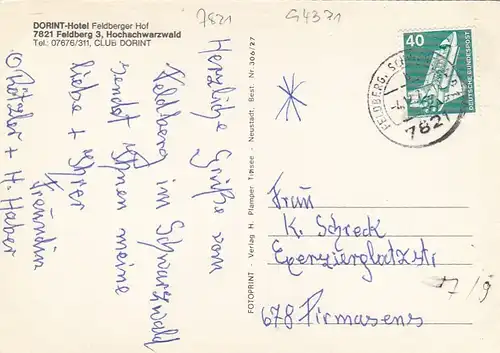 DORINT-Hotel Feldberger Hof
7821 Feldberg 3, Hochschwarzwald
Tel.: 07676/311, CLUB DORINT
7821
G4371
Herzliche Grüße vom
Feldberg im Schwarzwald
sendet Ihnen meine
liebe + Ihrer
Freundin
+ H. Haber
FOTOPRINT - Verlag H. Plamper Titisee - Neustadt, Best. Nr. 306/27
40
DEUTSCHE BUNDESPOST
FELDBERG,
7821
Frau
K. Schreck
Exerzierplatzstr
7/9
678 Pirmasens